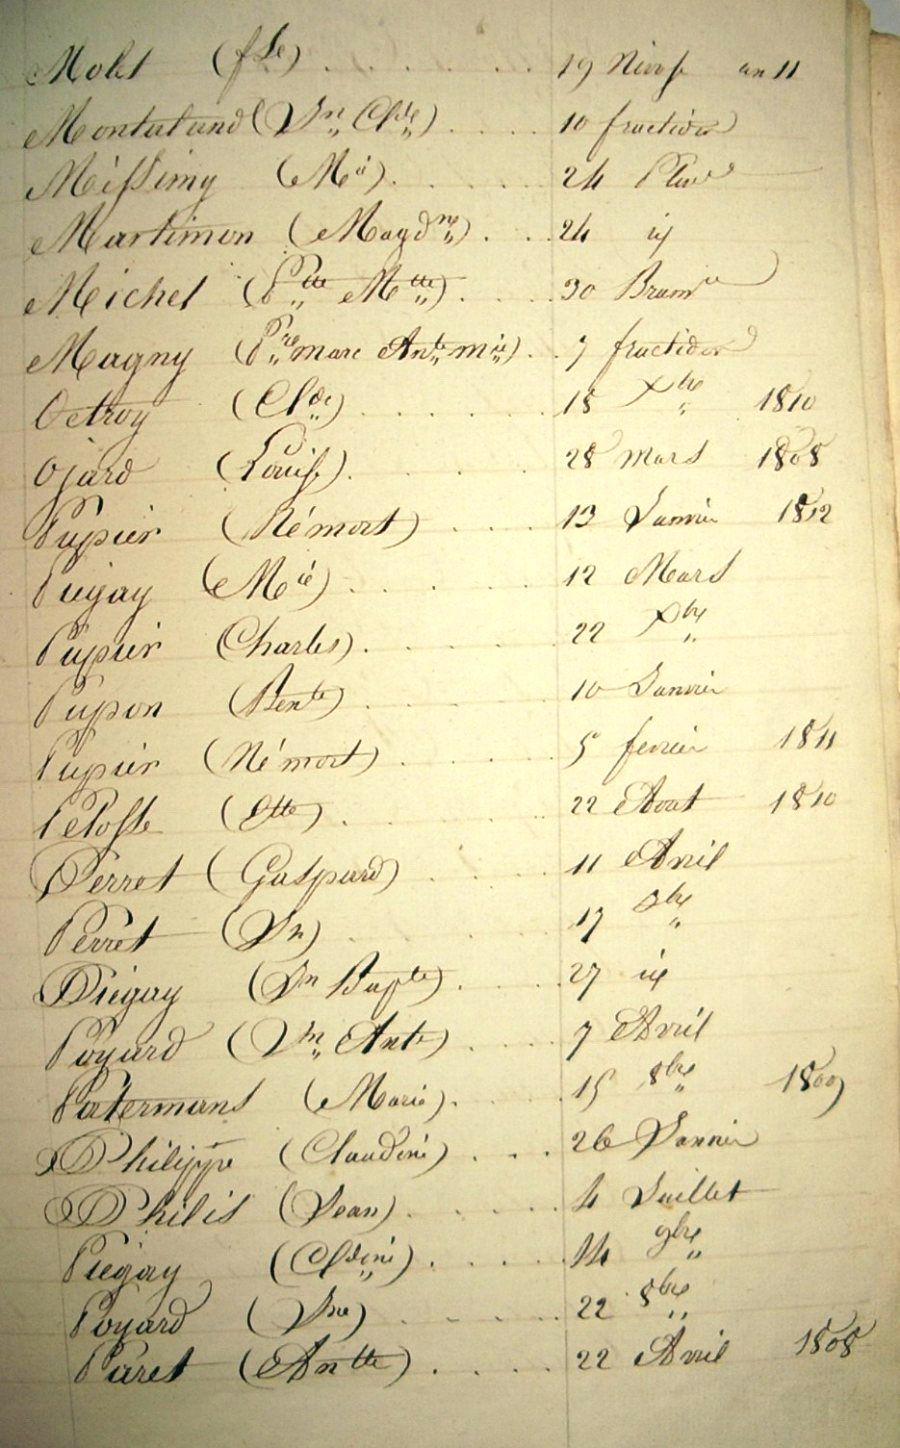 Molet (f se) . . . . . . 19 Nivose an 11
Montatand (Jn Clde) . . . . 10 fructidor
Meissimy (Mie) . . . . . 24 Pluvse
Martimon (Magdne) . . . 24 id
Michel (Ptte Mtte) . . . . 30 Brumre
Magny (Pre marc Ante mie) . . 7 fructidor
Octroy (Clde) . . . . . . 18 Xbre 1810
Ojard (Louise) . . . . . 28 Mars 1808
Pupier (Némort) . . . . 13 Janvier 1812
Piegay (Mie) . . . . . 12 Mars
Pupier (Charles) . . . . . 22 Xbre
Pupon (Bente) . . . . . 10 Janvier
Pupier (Némort) . . . . . 5 fevrier 1811
Pelosse (Ette) . . . . . 22 Aout 1810
Perret (Gaspard) . . . . 11 Avril
Perret (Jn) . . . . . 17 9bre
Piegay (Jn Bapte) . . . . 27 id
Poyard (Jn Ante) . . . . 7 Avril
Patermans (Marie) . . . . 15 8bre 1809
Philippe (Claudine) . . . 26 Janvier
Philis (Jean) . . . . . 4 Juillet
Piegay (Cldine) . . . . . 14 9bre
Poyard (Jne) . . . . . 22 8bre
Paret (Antte) . . . . 22 Avril 1808